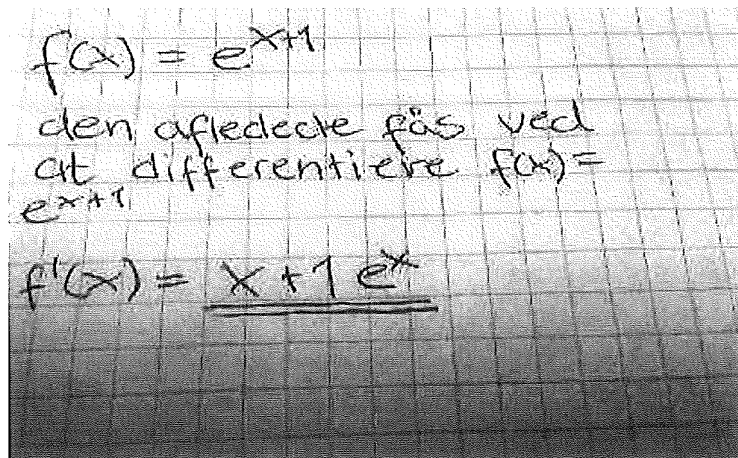 f(x) = e^{x+1}
den afledede fås ved
at differentiere f(x)=
e^{x+1}
f'(x) = x + 1 e^x